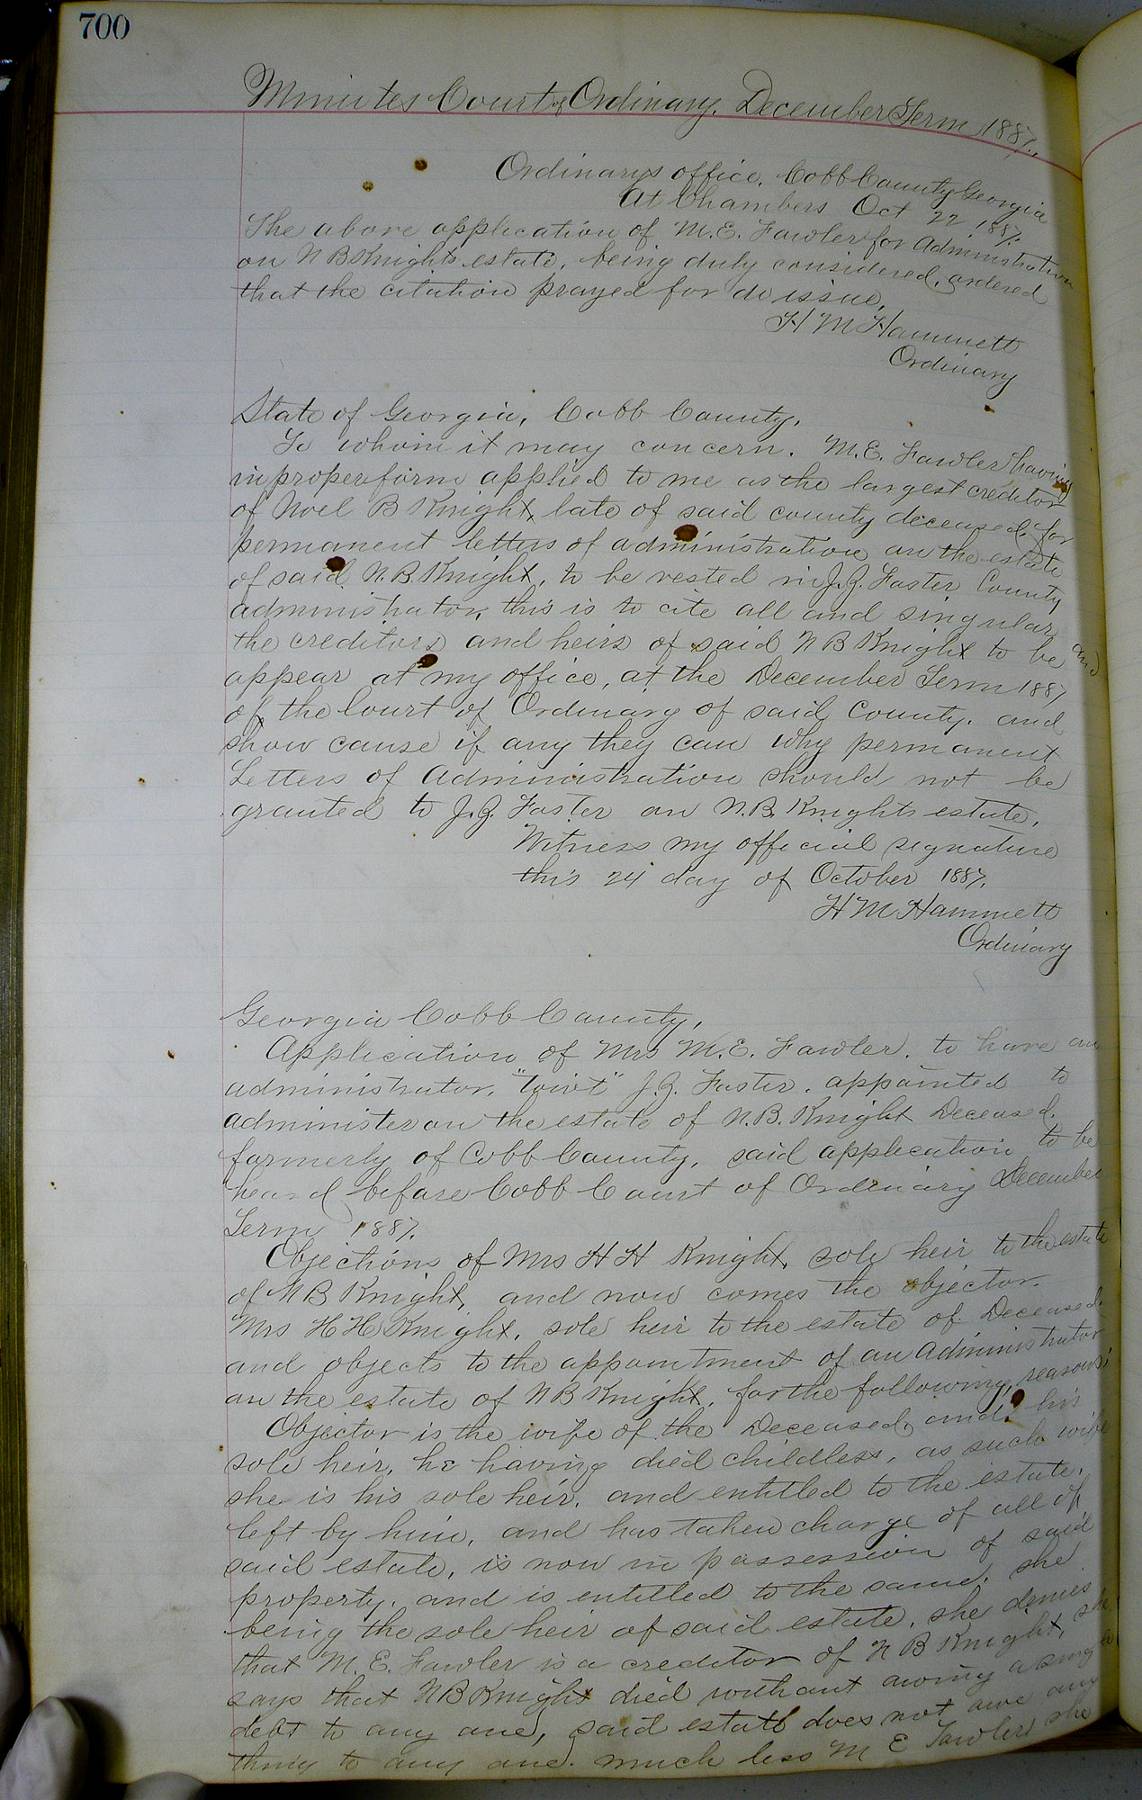 700
Minutes Court of Ordinary, December Term 1887.
Ordinarys office, Cobb County Georgia
At Chambers Oct 22, 1887.
The above application of M.E. Fowler for Administration
on N B Knights estate, being duly considered, ordered
that the citation prayed for do issue,
H M Hammett
Ordinary
State of Georgia, Cobb County,
To whom it may concern. M.E. Fowler having
in proper form applied to me as the largest creditor
of Noel B Knight, late of said county deceased, for
permanent letters of administration on the estate
of said N.B. Knight, to be vested in J.G. Foster County
administrator, this is to cite all and singular,
the creditors and heirs of said N B Knight to be and
appear at my office, at the December Term 1887
of the Court of Ordinary of said County, and
show cause if any they can why permanent
Letters of Administration should not be
granted to J.G. Foster on N.B. Knights estate,
Witness my official signature
this 24 day of October 1887.
H M Hammett
Ordinary
Georgia Cobb County,
Application of Mrs M.E. Fowler, to have an
administrator, "towit" J.G. Foster, appointed to
administer on the estate of N.B. Knight Deceased,
formerly of Cobb County, said application to be
heard before Cobb Court of Ordinary December
Term 1887.
Objections of Mrs H H Knight, sole heir to the estate
of N B Knight, and now comes the objector
Mrs H H Knight, sole heir to the estate of Deceased,
and objects to the appointment of an Administrator
on the estate of N B Knight, for the following reasons:
Objector is the wife of the Deceased, and his
sole heir, he having died childless, as such wife
she is his sole heir, and entitled to the estate,
left by him, and has taken charge of all of
said estate, is now in possession of said
property, and is entitled to the same, she
being the sole heir of said estate, she denies
that M.E. Fowler is a creditor of N B Knight, she
says that N B Knight died without owing a single
debt to any one, said estate does not owe any
thing to any one, much less M E Fowler, she